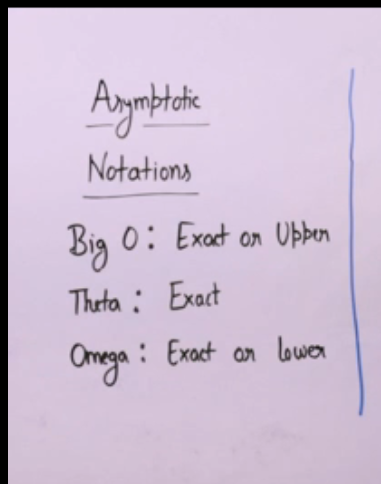 Asymptotic
Notations
Big O: Exact or Upper
Theta: Exact
Omega: Exact or lower